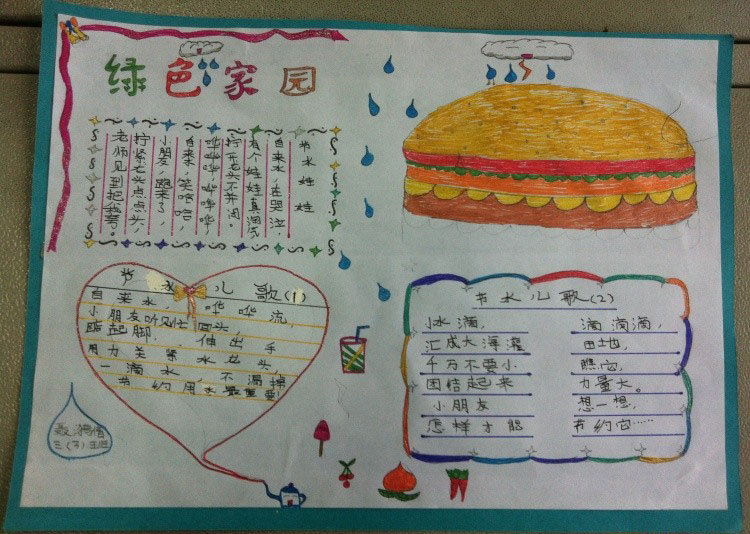 绿色家园
节水娃娃
自来水,在哭泣,
有个娃娃真淘气
拧开龙头不
哗哗哗哗哗哗
自来水,笑哈哈,
小朋友,跑来了,
拧紧龙头点点头,
老师见到把我夸。
节水儿歌(1)
自来水,哗哗流,
小朋友听见忙回头,
踮起脚,伸出手
用力关紧水龙头,
一滴水,不漏掉
节约用水最重要!
节水儿歌(2)
水滴, 滴滴滴,
汇成大海灌 田地,
千万不要小 瞧它,
团结起来 力量大。
小朋友 想一想,
怎样才能 节约它……